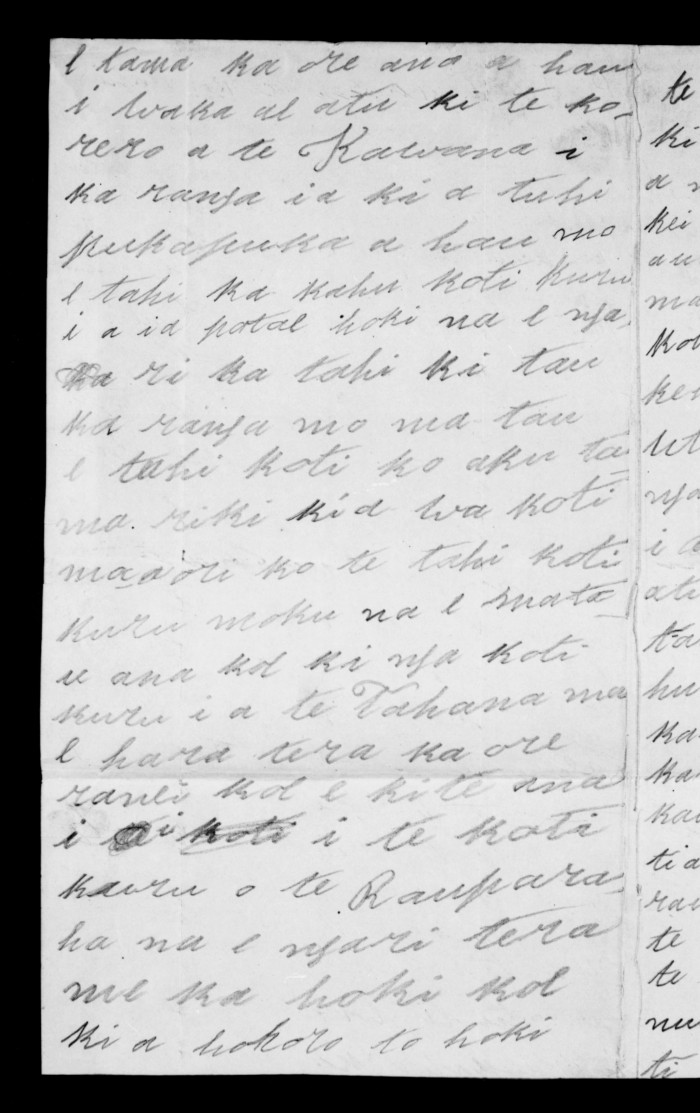 e tama ka ore ana a hau
i waka ae atu ki te ko-
rero a te Kawana i
ka ranga ia ki a tuhi
pukapuka a hau mo
e tahi ka kahu koti kuru
i a ia potae hoki na e nga
ka ri ka tahi ki tau
ka ranga mo ma tau
e tahi koti ko aku ta-
ma riki kia wa koti
maaori ko te tahi koti
kuru moku na e mata-
u ana koe ki nga koti
kuru i a te Tahana ma
e hara tera ka ore
ranei koe e kite ana
i a i koti i te koti
kauru o te Raupara-
ha na e ngari tera
me ka hoki koe
ki a hohoro to hoki
te
ki
kei
au
ma
i
atu
ta
hu
ka
ka
kau
ti a
rau
te
te
nu
ti